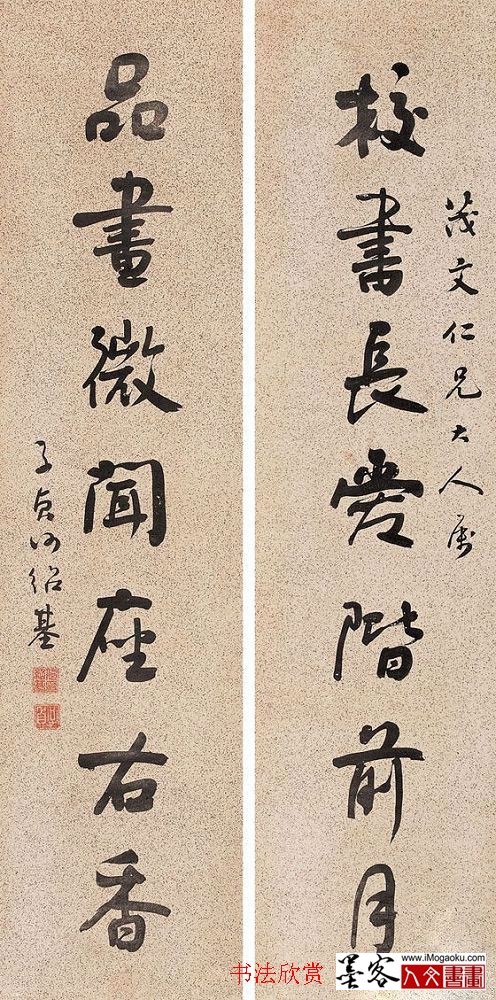 茂文仁兄大人属
校書長愛階前月
品畫微聞座右香
子貞何紹基
书法欣赏
墨客
www.iMogaoku.com
人文書畫